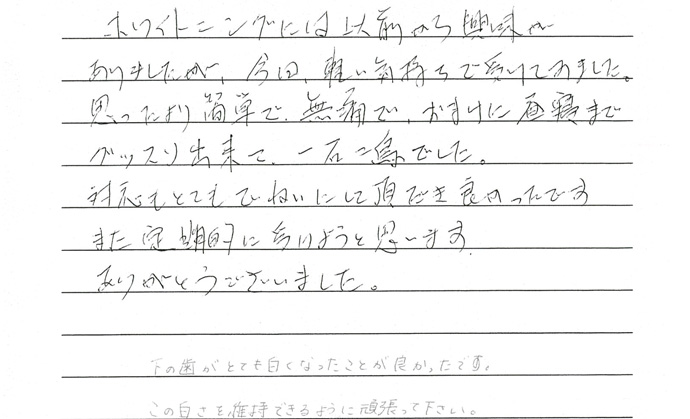 ホワイトニングには以前から興味が
ありましたが、今回、軽い気持ちで受けてみました。
思ったより簡単で、無痛で、おまけに昼寝まで
グッスリ出来て、一石二鳥でした。
対応もとてもていねいにして頂き良かったです
また定期的に受けようと思います。
ありがとうございました。
下の歯がとても白くなったことが良かったです。
この白さを維持できるように頑張って下さい。